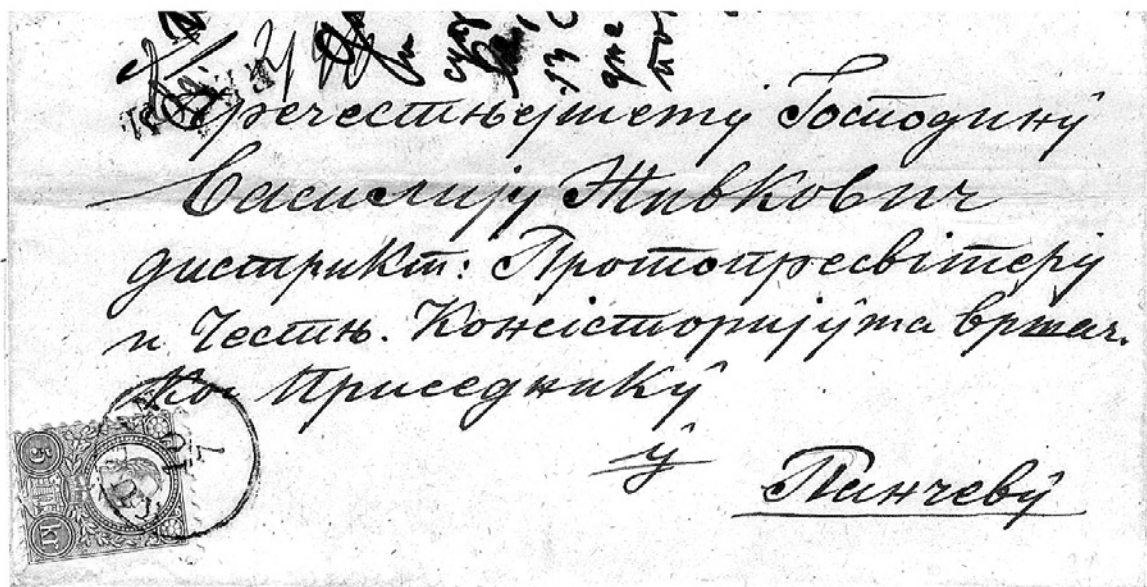 Пречестњејшему Господину
Василију Живковић
дистрикт: Протопресвітеру
и Честњ. Консісторијума вршач.
Приседнику
у
Панчеву
10
7
5
KR